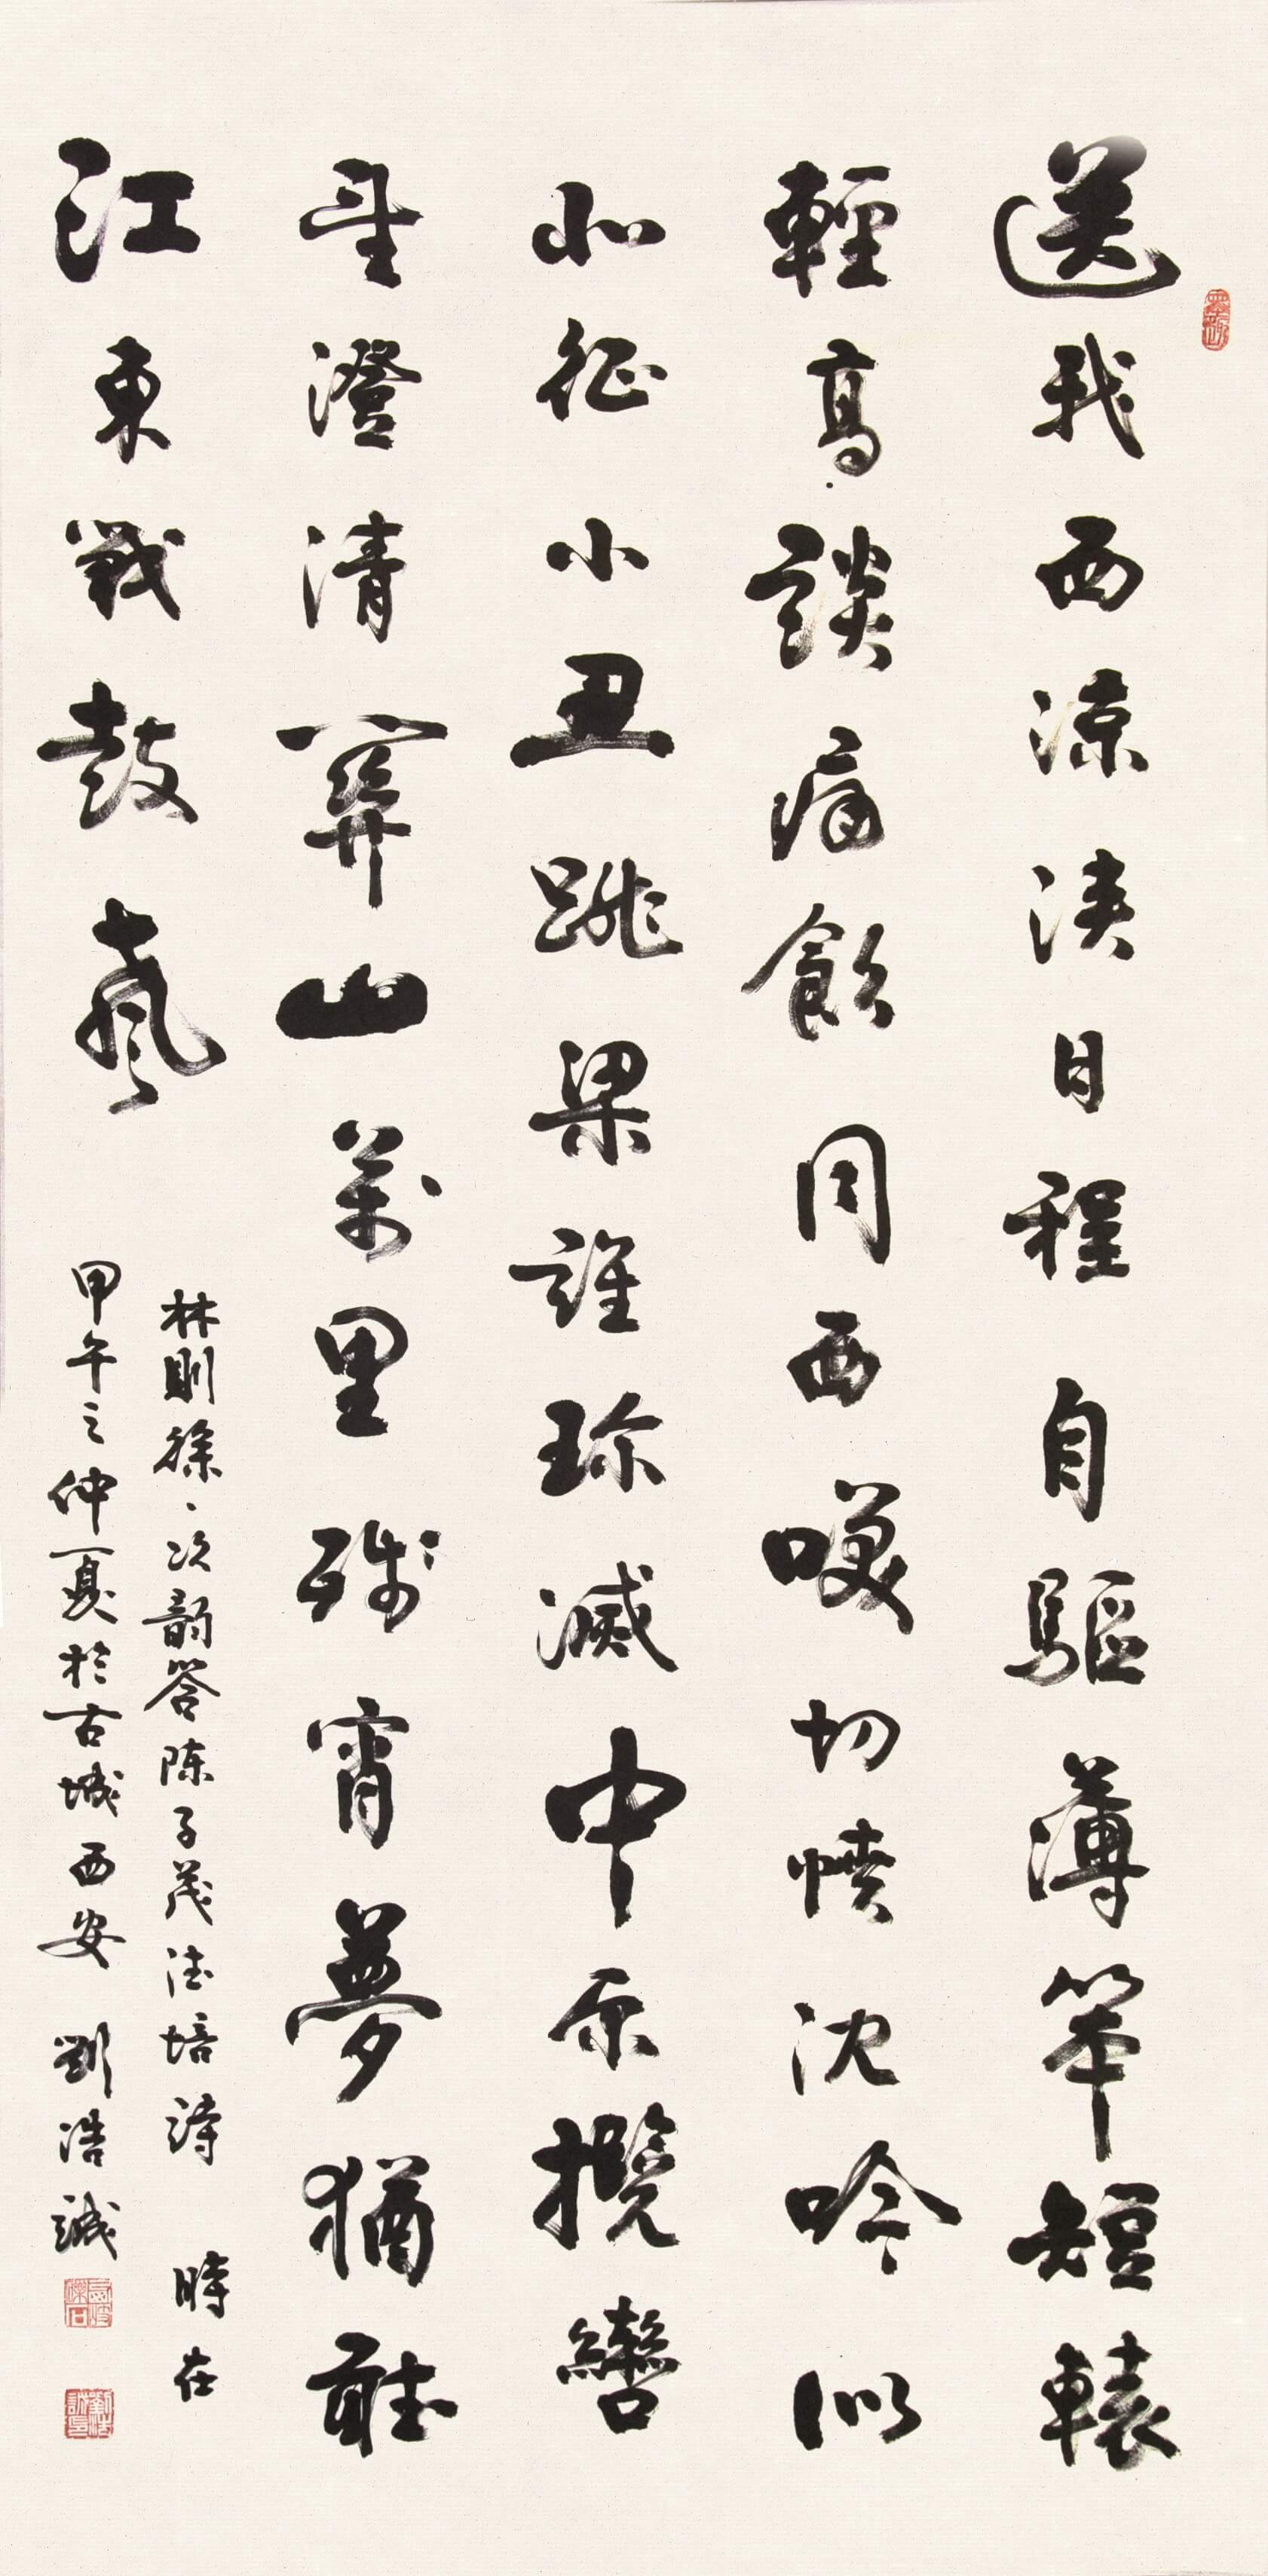 送我西涼浹日程自驅薄笨短轅
輕高談痛飲同西咲切憤沈吟似
北征小丑跳梁誰殄滅中原攬轡
望澄清關山萬里殘宵夢猶聽
江東戰鼓聲
林則徐、次韵答陈子茂德培詩 時在
甲午之仲夏於古城西安 劉浩誠